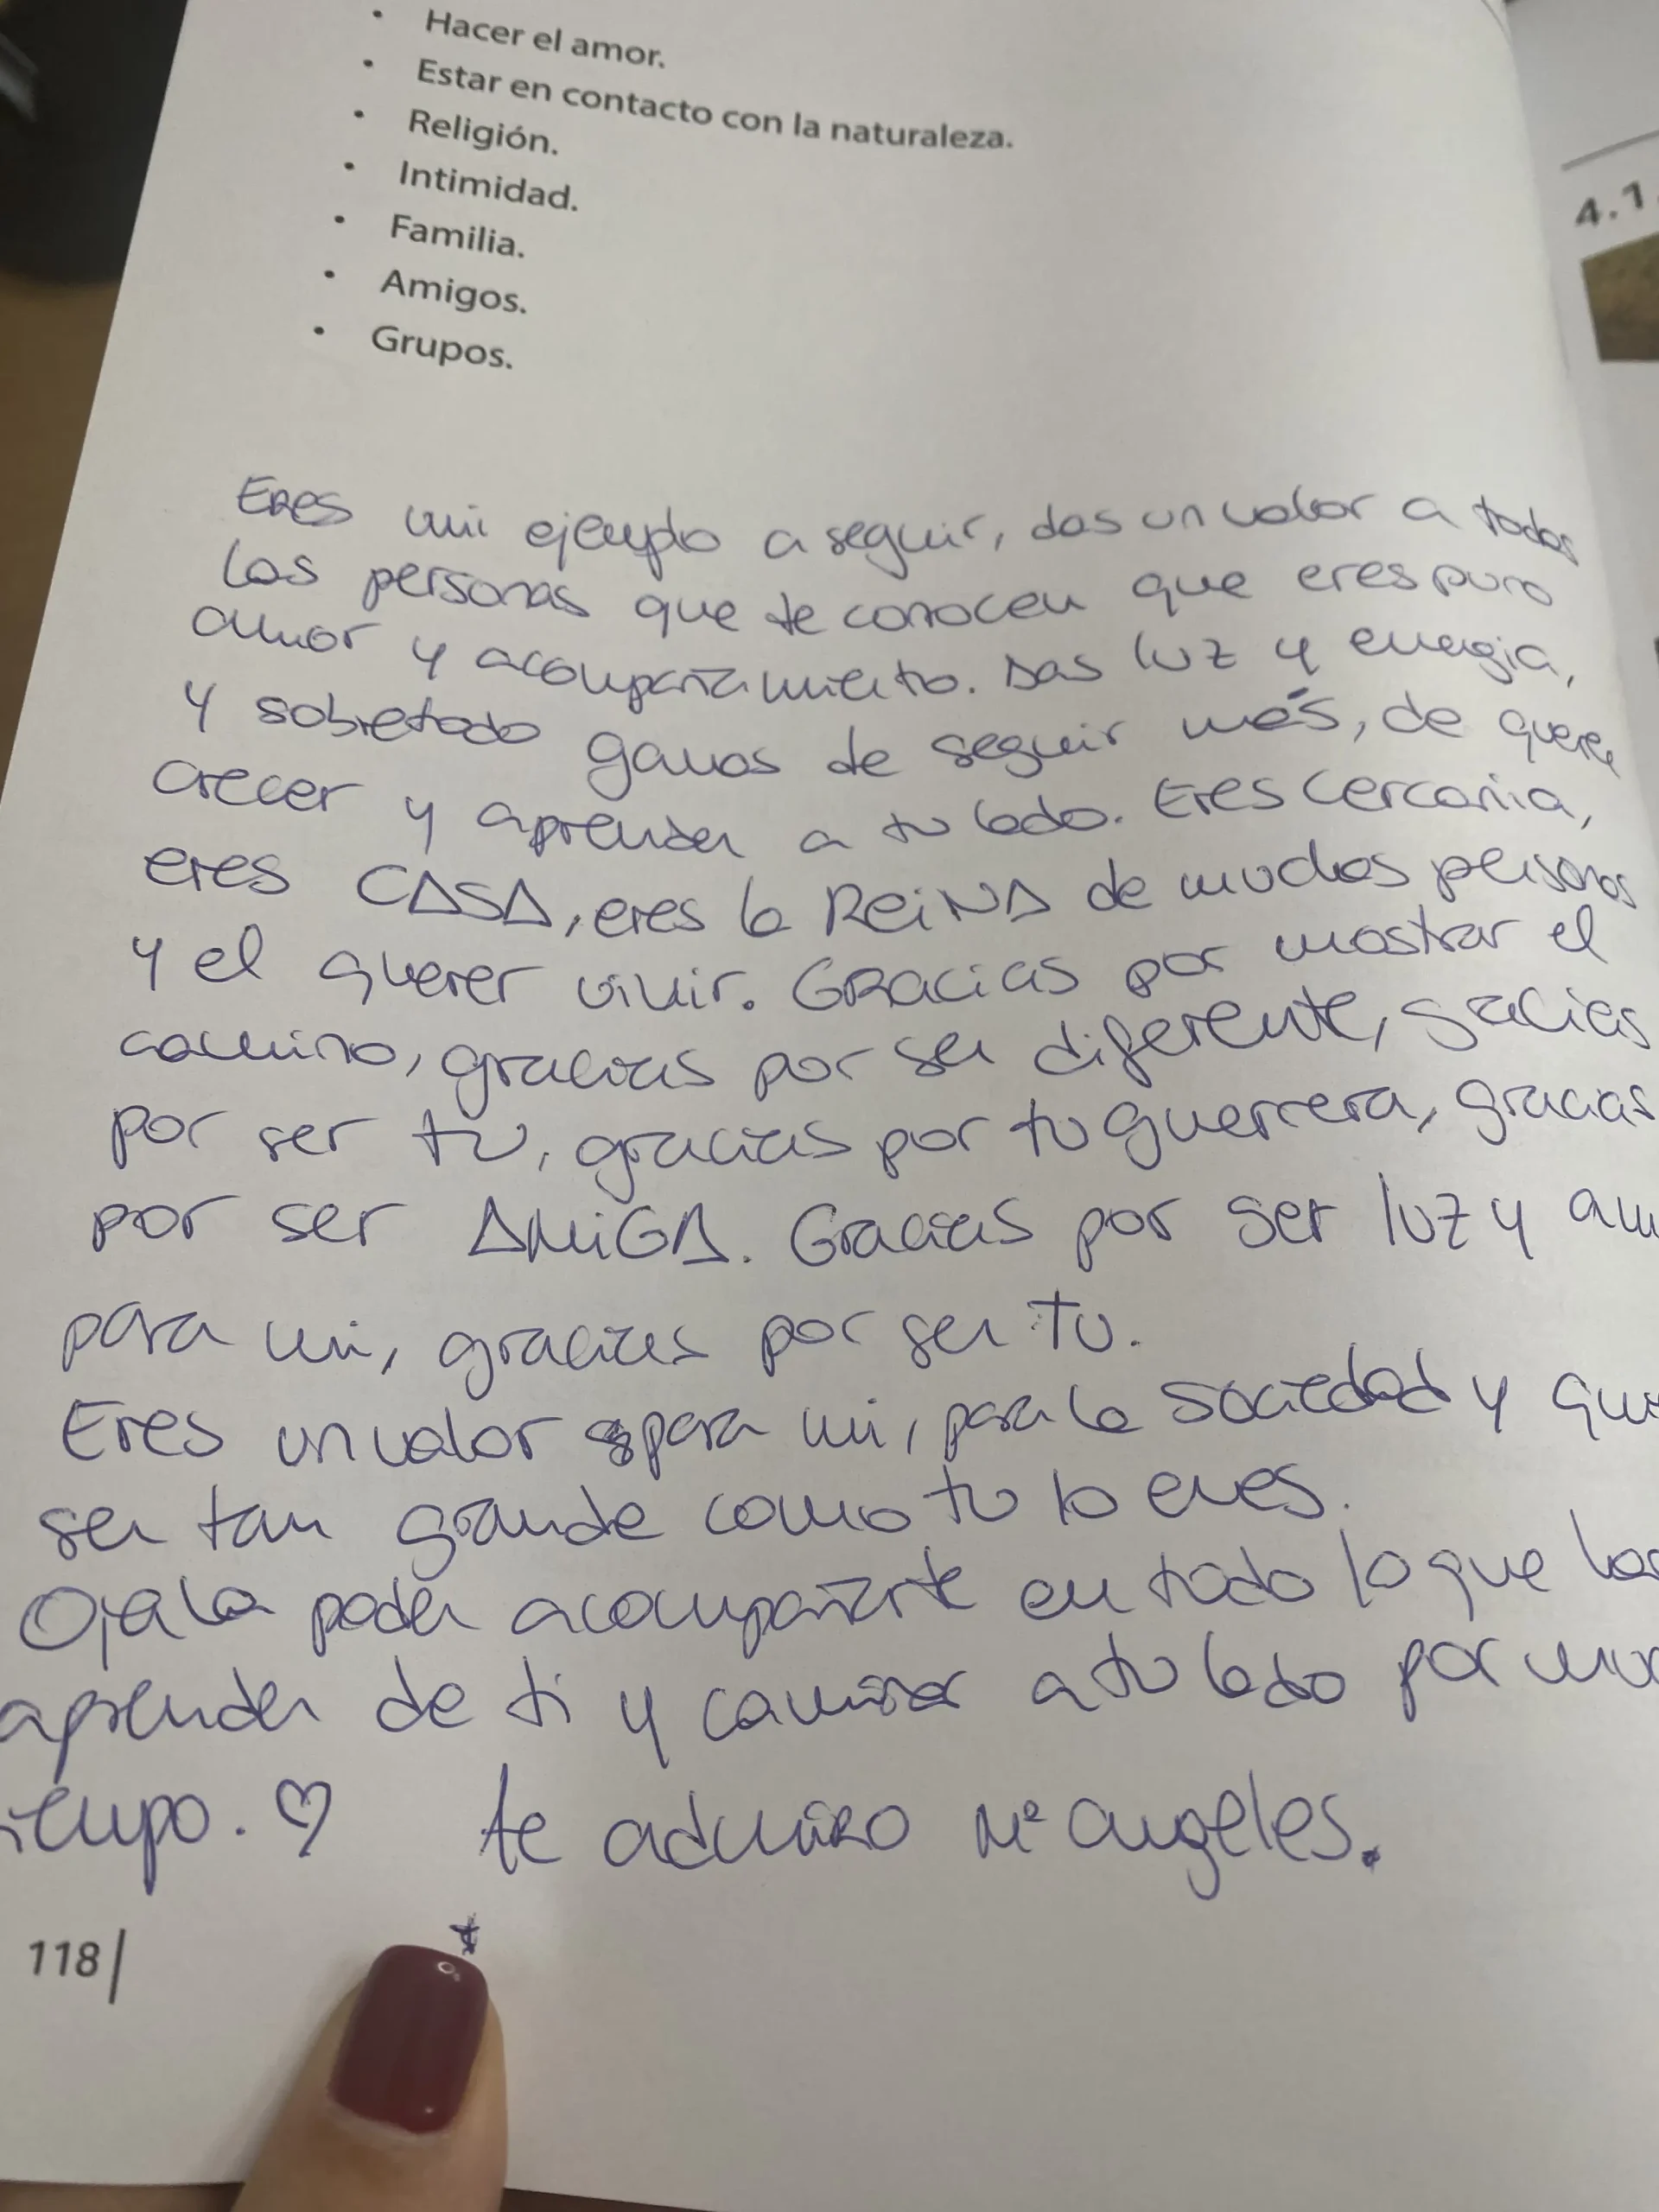 • Hacer el amor.
• Estar en contacto con la naturaleza.
• Religión.
• Intimidad.
• Familia.
• Amigos.
• Grupos.
4.1.
Eres mi ejemplo a seguir, das un valor a todas
las personas que te conocen que eres puro
amor y acompañamiento. Das luz y energia,
y sobretodo ganas de seguir más, de querer
crecer y aprender a tu lado. Eres cercania,
eres CASA, eres la REINA de muchas personas
y el querer vivir. Gracias por mostrar el
camino, gracias por ser diferente, gracias
por ser tu, gracias por tu guerrera, gracias
por ser AMIGA. Gracias por ser luz y am
para mi, gracias por ser tu.
Eres un valor para mi, para la sociedad y
ser tan grande como tu lo eres.
Ojala poder acompañarte en todo lo que
aprender de ti y caminar a tu lado por
iempo. ♡ te admiro Mª Angeles.
118|